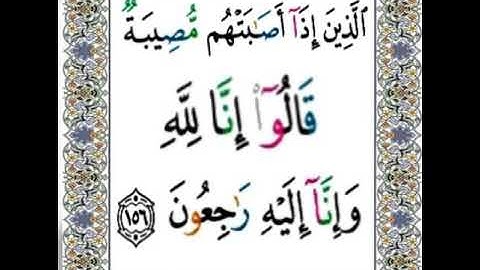 ٱلَّذِينَ إِذَآ أَصَـٰبَتْهُم مُّصِيبَةٌ
قَالُوٓا۟ إِنَّا لِلَّهِ
وَإِنَّآ إِلَيْهِ رَٰجِعُونَ ١٥٦